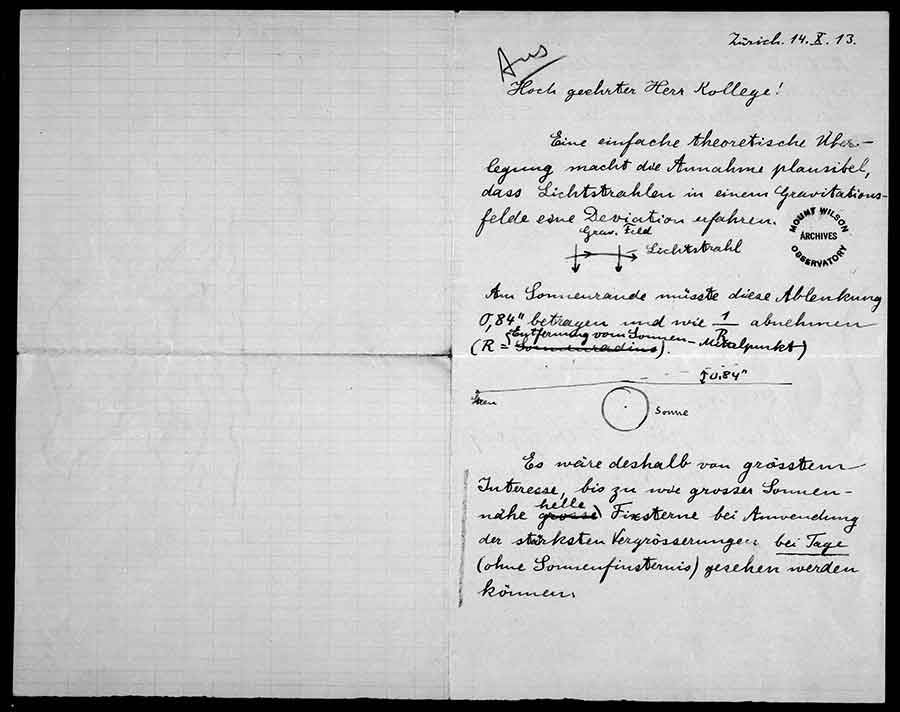 Zürich. 14. X. 13.
Hoch geehrter Herr Kollege!
Eine einfache theoretische Über-
legung macht die Annahme plausibel,
dass Lichtstrahlen in einem Gravitations-
felde eine Deviation erfahren.
MOUNT WILSON
ARCHIVES
OBSERVATORY
Grav. Feld
Lichtstrahl
Am Sonnenrande müsste diese Ablenkung
0,84" betragen und wie 1/R abnehmen
Entfernung vom Sonnen-Mittelpunkt
(R = Sonnenradius).
0.84"
Stern
Sonne
Es wäre deshalb von grösstem
Interesse, bis zu wie grosser Sonnen-
helle
nähe grosse Fixsterne bei Anwendung
der stärksten Vergrösserungen bei Tage
(ohne Sonnenfinsternis) gesehen werden
können.